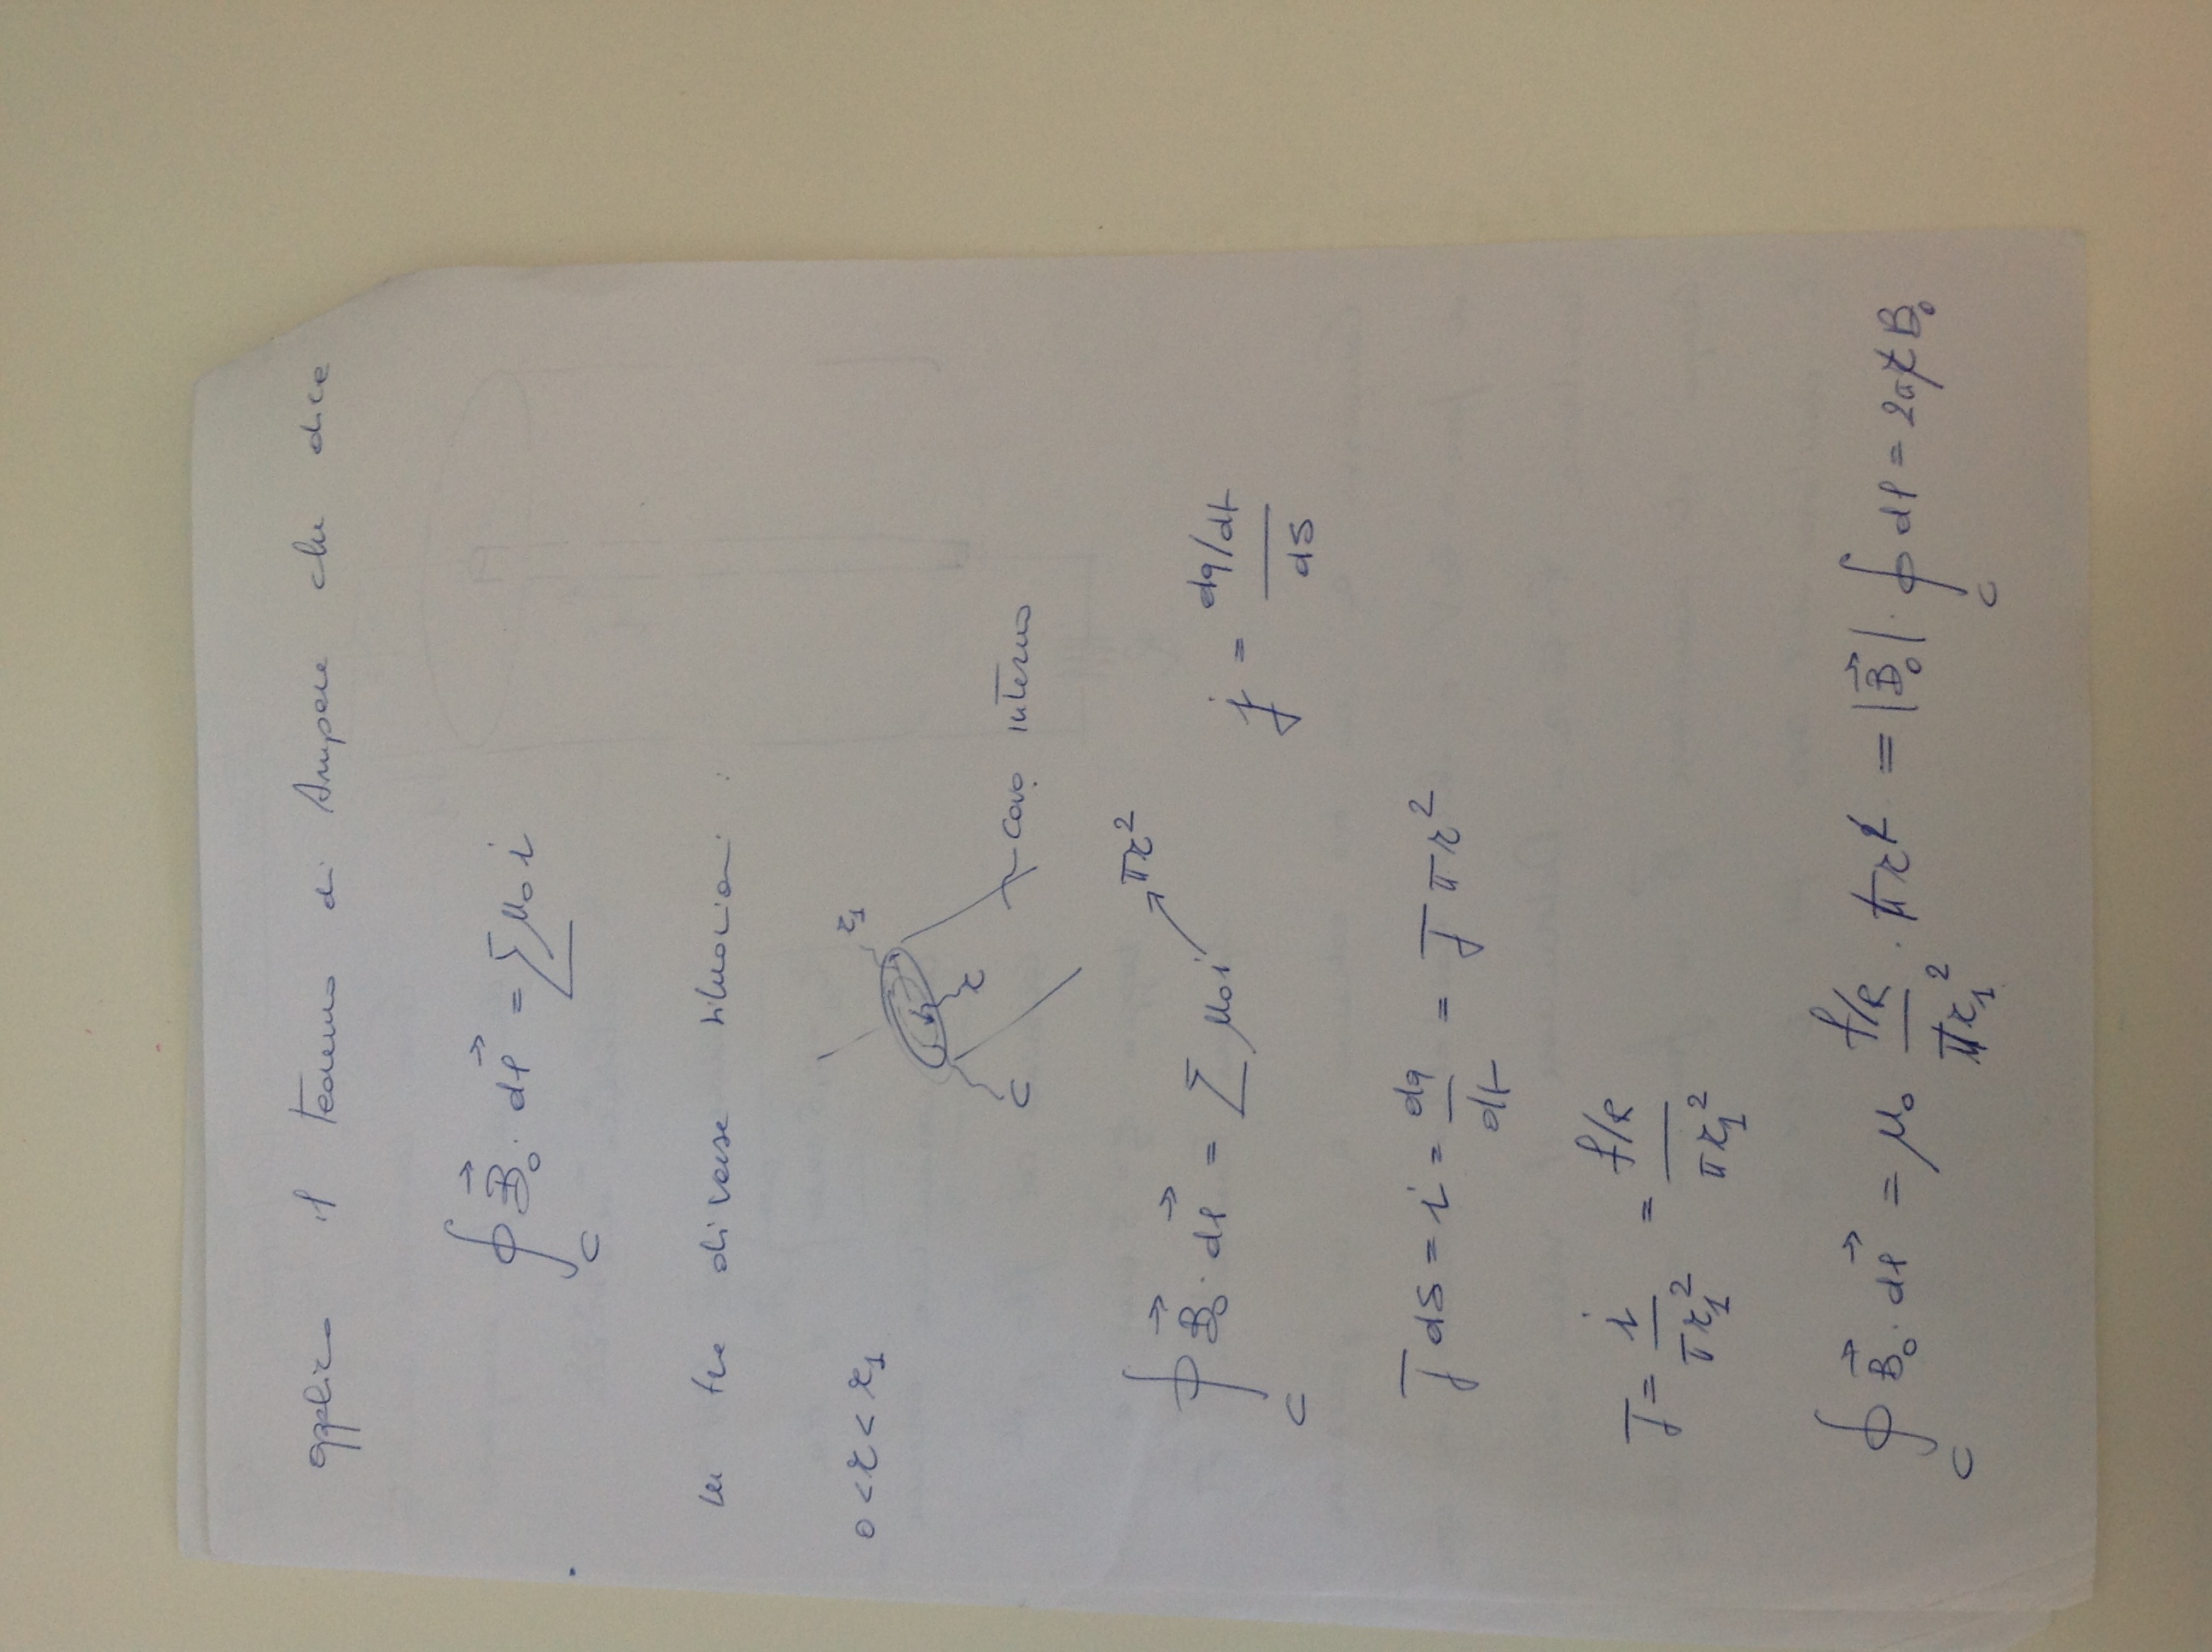 applico il teorema di Ampere che dice
∮_C B⃗₀ · dl⃗ = ∑ μ₀ i
in tre diverse situazioni :
0 < r < r₁
r₁
r
C
cavo interno
∮_C B⃗₀ · dl⃗ = ∑ μ₀ i → πr²
j = (dq/dt) / dS
J dS = i = dq/dt = J π r²
J = i / πr₁² = (f/R) / πr₁²
∮_C B⃗₀ · dl⃗ = μ₀ (f/R) / πr₁² · πr² = |B⃗₀| · ∮_C dl = 2πr B₀